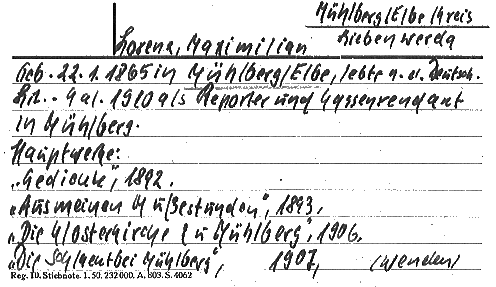 Mühlberg/Elbe Kreis
Liebenwerda
Lorenz, Maximilian
Geb. 22.1.1865 in Mühlberg/Elbe, lebte n. d. Deutsch.
Lit. - Kal. 1910 als Reporter und Kassenrendant
in Mühlberg.
Hauptwerke:
„Gedichte", 1892.
„Aus meinen Mußestunden", 1893,
„Die Klosterkirche zu Mühlberg", 1906,
„Die Schlacht bei Mühlberg", 1907, (wenden)
Reg. 10. Stiebnote. 1. 50. 232000. A. 803. S. 4062